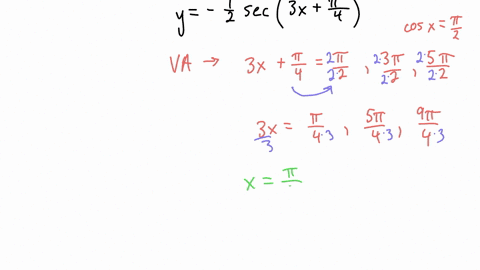 y = - 1/2 sec(3x + π/4)
cos x = π/2
VA → 3x + π/4 = 2π/2·2, 2·3π/2·2, 2·5π/2·2
3x/3 = π/4·3, 5π/4·3, 9π/4·3
x = π